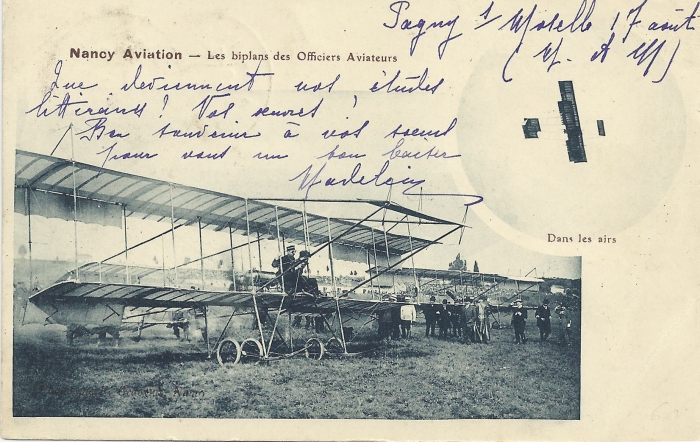 Pagny s/ Moselle 17 août
(M. et M)
Nancy Aviation — Les biplans des Officiers Aviateurs
Que deviennent vos études
littéraires! Vos œuvres!
Bon souvenir à vos soeurs
pour vous un bon baiser
Madeleine
Dans les airs